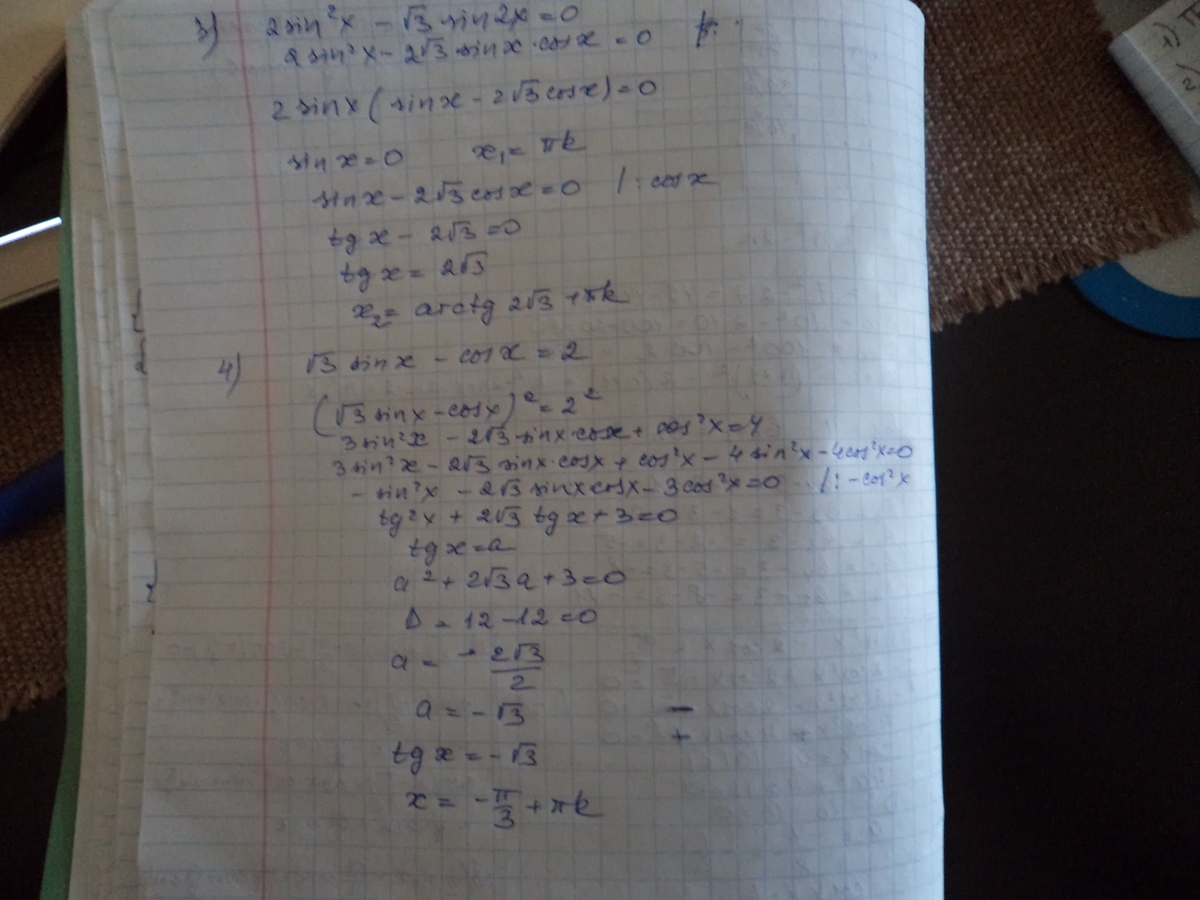 3) 2sin²x - √3 sin2x = 0
2sin²x - 2√3 sinx·cosx = 0
2sinx(sinx - 2√3cosx) = 0
sinx = 0 x₁ = πk
sinx - 2√3cosx = 0 /: cosx
tgx - 2√3 = 0
tgx = 2√3
x₂ = arctg 2√3 + πk
4) √3 sinx - cosx = 2
(√3 sinx - cosx)² = 2²
3sin²x - 2√3 sinx·cosx + cos²x = 4
3sin²x - 2√3 sinx·cosx + cos²x - 4sin²x - 4cos²x = 0
- sin²x - 2√3 sinxcosx - 3cos²x = 0 /: -cos²x
tg²x + 2√3 tgx + 3 = 0
tgx = a
a² + 2√3a + 3 = 0
D = 12 - 12 = 0
a = - 2√3/2
a = -√3
tgx = -√3
x = -π/3 + πk